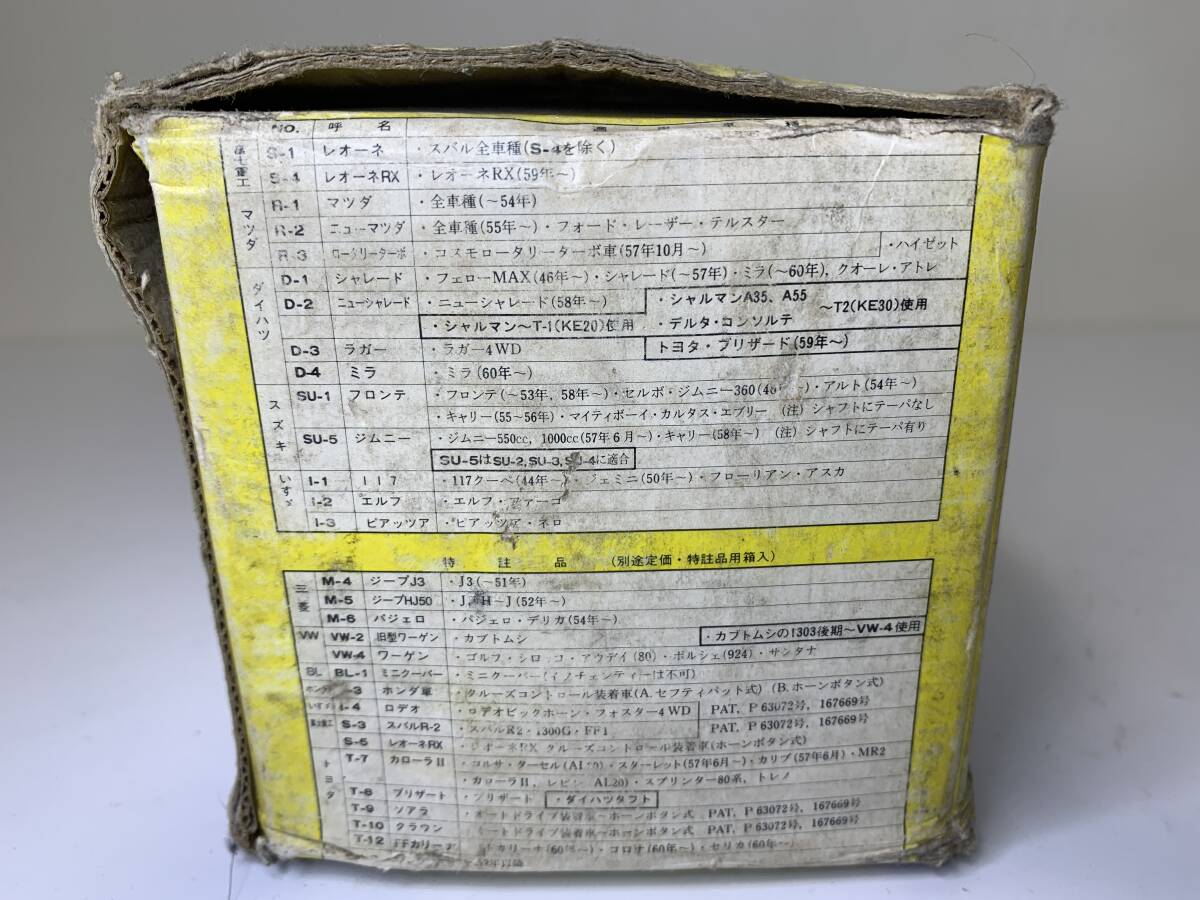 NO. 呼名 車種
富士重工 S-1 レオーネ ・スバル全車種(S-4を除く)
S-4 レオーネRX ・レオーネRX(59年〜)
マツダ R-1 マツダ ・全車種(〜54年)
R-2 ニューマツダ ・全車種(55年〜)・フォード・レーザー・テルスター
R-3 ロータリーターボ ・コスモロータリーターボ車(57年10月〜) ・ハイゼット
ダイハツ D-1 シャレード ・フェローMAX(46年〜)・シャレード(〜57年)・ミラ(〜60年), クオーレ・アトレ
D-2 ニューシャレード ・ニューシャレード(58年〜) ・シャルマンA35、A55 〜T2(KE30)使用
・シャルマン〜T-1(KE20)使用 ・デルタ・コンソルテ
D-3 ラガー ・ラガー4WD トヨタ・ブリザード(59年〜)
D-4 ミラ ・ミラ(60年〜)
スズキ SU-1 フロンテ ・フロンテ(〜53年, 58年〜)・セルボ・ジムニー360 ・アルト(54年〜)
・キャリー(55〜56年)・マイティボーイ・カルタス・エブリー (注) シャフトにテーパなし
SU-5 ジムニー ・ジムニー550cc, 1000cc(57年6月〜)・キャリー(58年〜) (注) シャフトにテーパ有り
SU-5はSU-2, SU-3, SU-4に適合
いすゞ I-1 117 ・117クーペ(44年〜)・ジェミニ(50年〜)・フローリアン・アスカ
I-2 エルフ ・エルフ・ファーゴ
I-3 ピアッツア ・ピアッツア・ネロ
特註品 (別途定価・特註品用箱入)
三菱 M-4 ジープJ3 ・J3(〜51年)
M-5 ジープHJ50 ・J, H-J(52年〜)
M-6 パジェロ ・パジェロ・デリカ(54年〜)
VW VW-2 旧型ワーゲン ・カブトムシ ・カブトムシの1303後期〜VW-4使用
VW-4 ワーゲン ・ゴルフ・シロッコ・アウデイ(80)・ポルシェ(924)・サンタナ
BL BL-1 ミニクーパー ・ミニクーパー(イノチェンティーは不可)
ホンダ -3 ホンダ車 ・クルーズコントロール装着車(A. セフティパット式) (B. ホーンボタン式)
いすゞ I-4 ロデオ ・ロデオビックホーン・フォスター4WD PAT, P 63072号, 167669号
富士重工 S-3 スバルR-2 ・スバルR2・1300G・FF1 PAT, P 63072号, 167669号
S-5 レオーネRX ・レオーネRX クルーズコントロール装着車(ホーンボタン式)
トヨタ T-7 カローラII ・コルサ・ターセル ・スターレット(57年6月〜)・カリブ(57年6月)・MR2
・カローラII, レビン AL20)・スプリンター80系, トレノ
T-8 ブリザート ・ブリザート ・ダイハツタフト
T-9 ソアラ ・オートドライブ装着車〜ホーンボタン式 PAT, P 63072号, 167669号
T-10 クラウン オートドライブ装着車〜ホーンボタン式 PAT, P 63072号, 167669号
T-12 FFカリーナ カリーナ(60年〜)・コロナ(60年〜)・セリカ(60年〜)